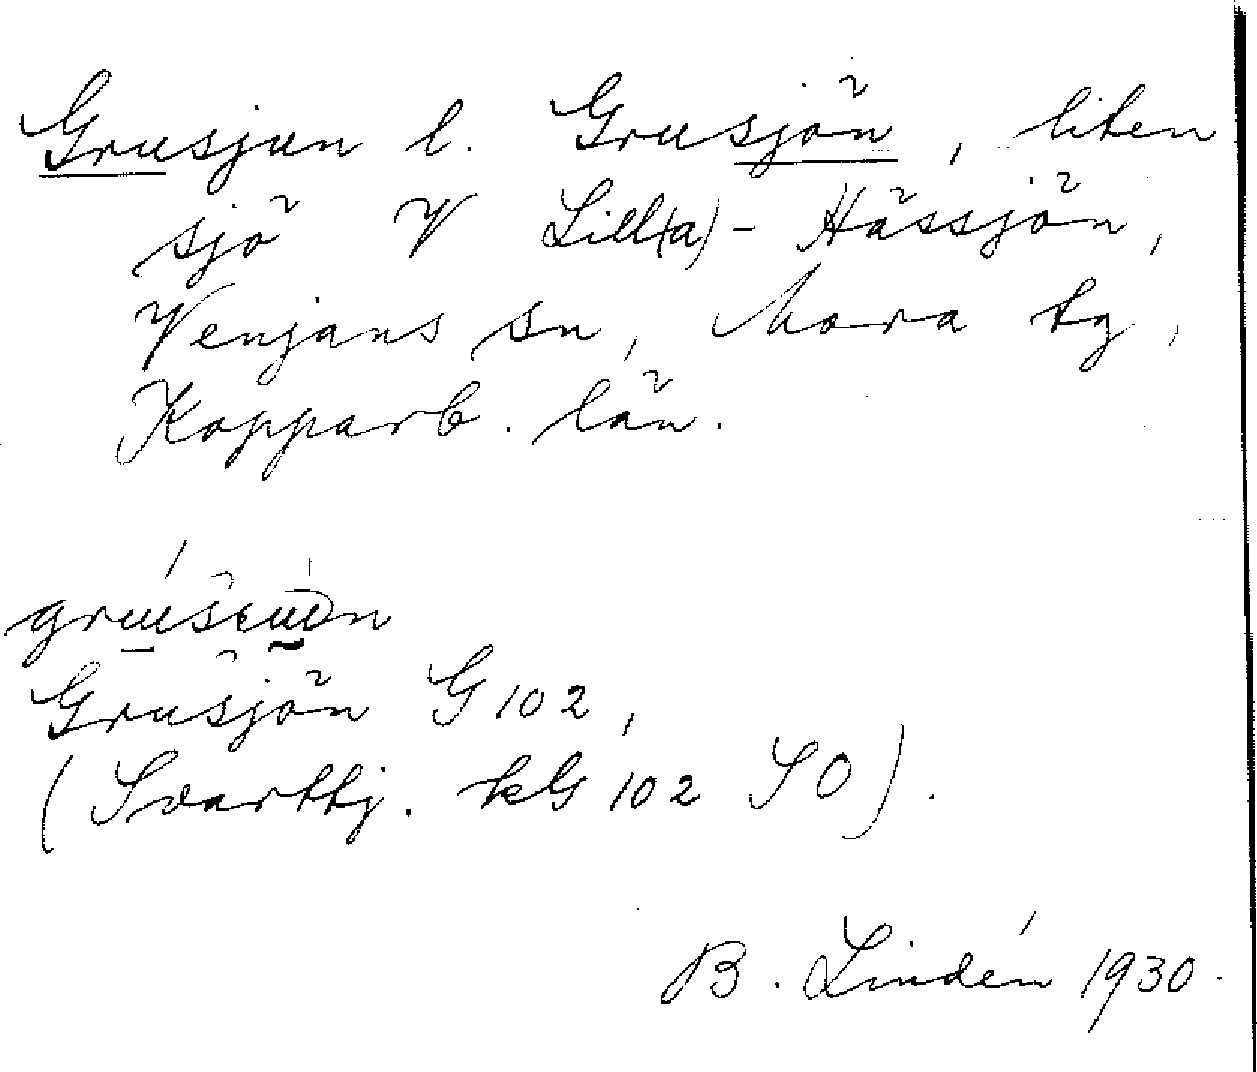 Grusjun l. Grusjön, liten
sjö V Lill(a)-Hässjön,
Venjans sn, Mora tg,
Kopparb. län.
Grusjön G 102,
(Svarttj. kG 102 SO).
B. Lindén 1930.